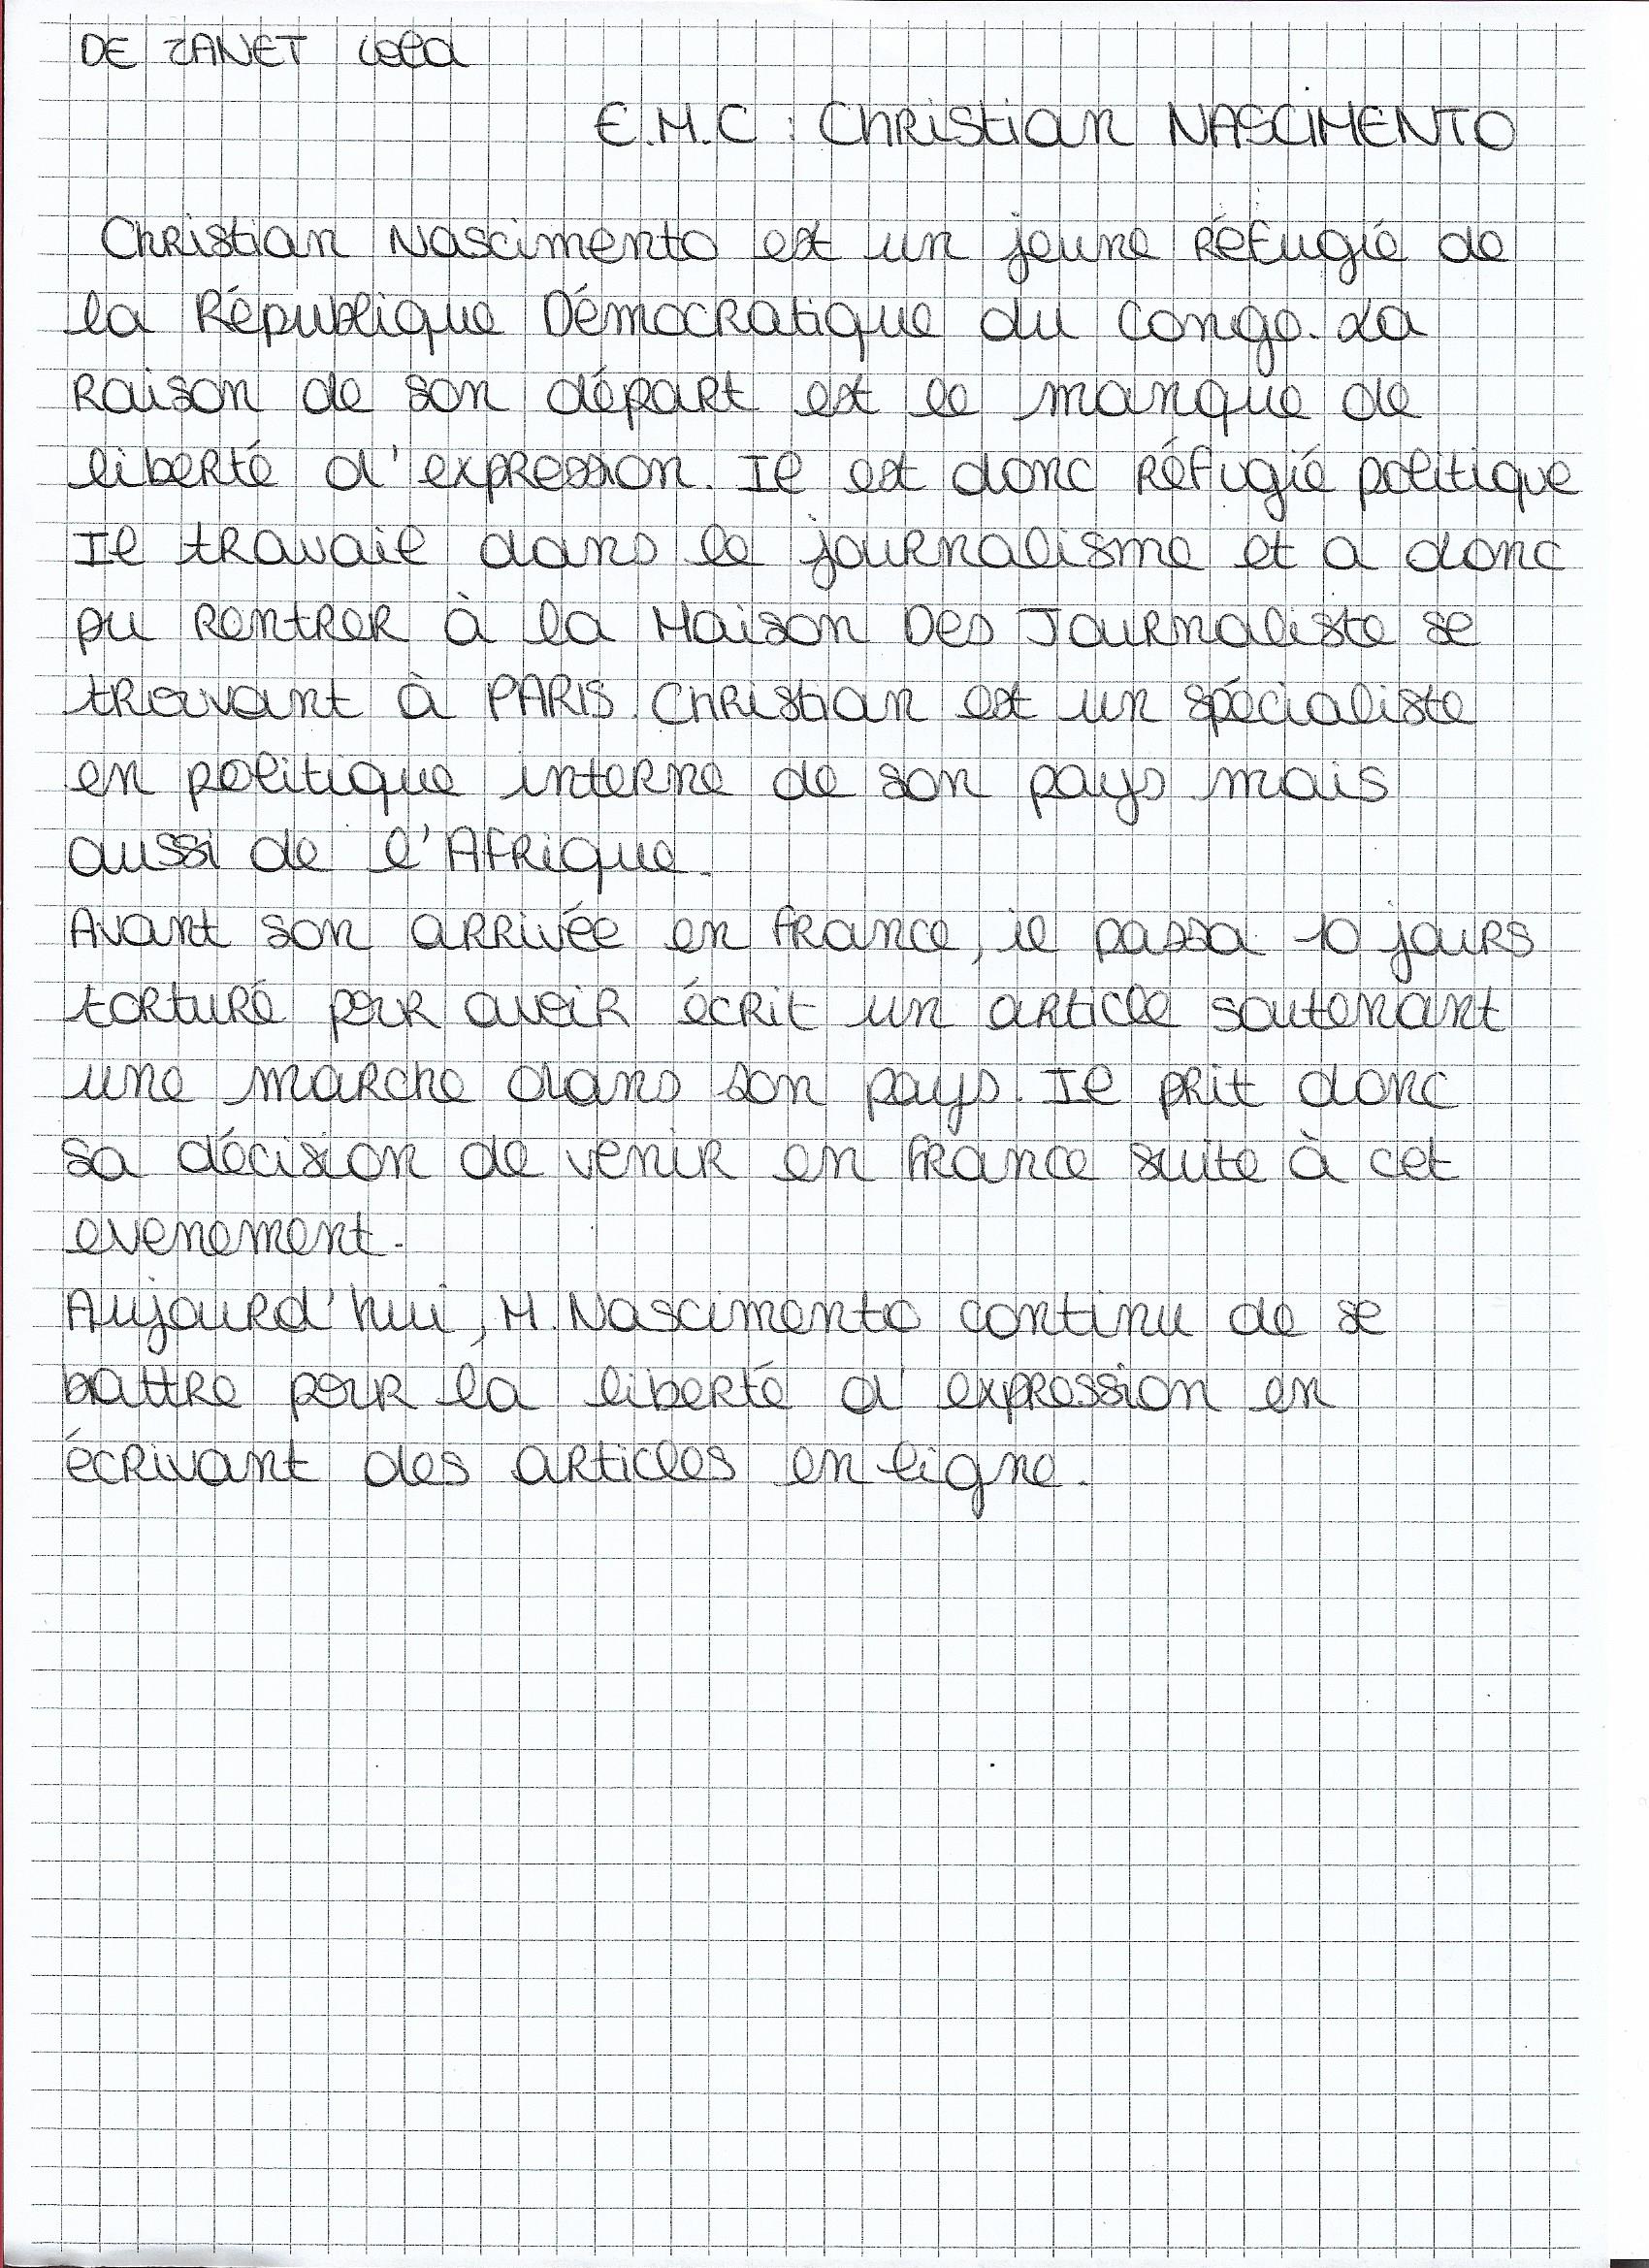 DE ZANET Lola
E.M.C : Christian NASCIMENTO
Christian Nascimento est un jeune réfugié de
la République Démocratique du Congo. La
raison de son départ est le manque de
liberté d'expression. Il est donc réfugié politique
Il travail dans le journalisme et a donc
pu rentrer à la Maison Des Journaliste se
trouvant à PARIS. Christian est un spécialiste
en politique interne de son pays mais
aussi de l'Afrique.
Avant son arrivée en france, il passa 10 jours
torturé pour avoir écrit un article soutenant
une marche dans son pays. Il prit donc
sa décision de venir en france suite à cet
evenement.
Aujourd'hui, M. Nascimento continu de se
battre pour la liberté d'expression en
écrivant des articles en ligne.